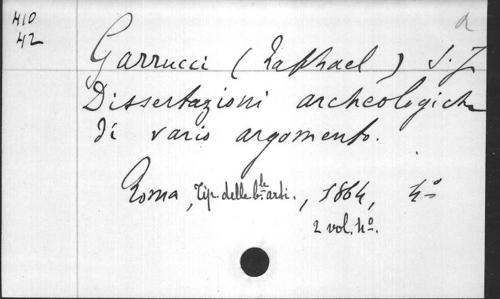 410
42
a
Garrucci (Raphael) S. J.
Dissertazioni archeologiche
di vario argomento.
Roma, Tip. delle b.le arti., 1864, 4º
2 vol. 4º.